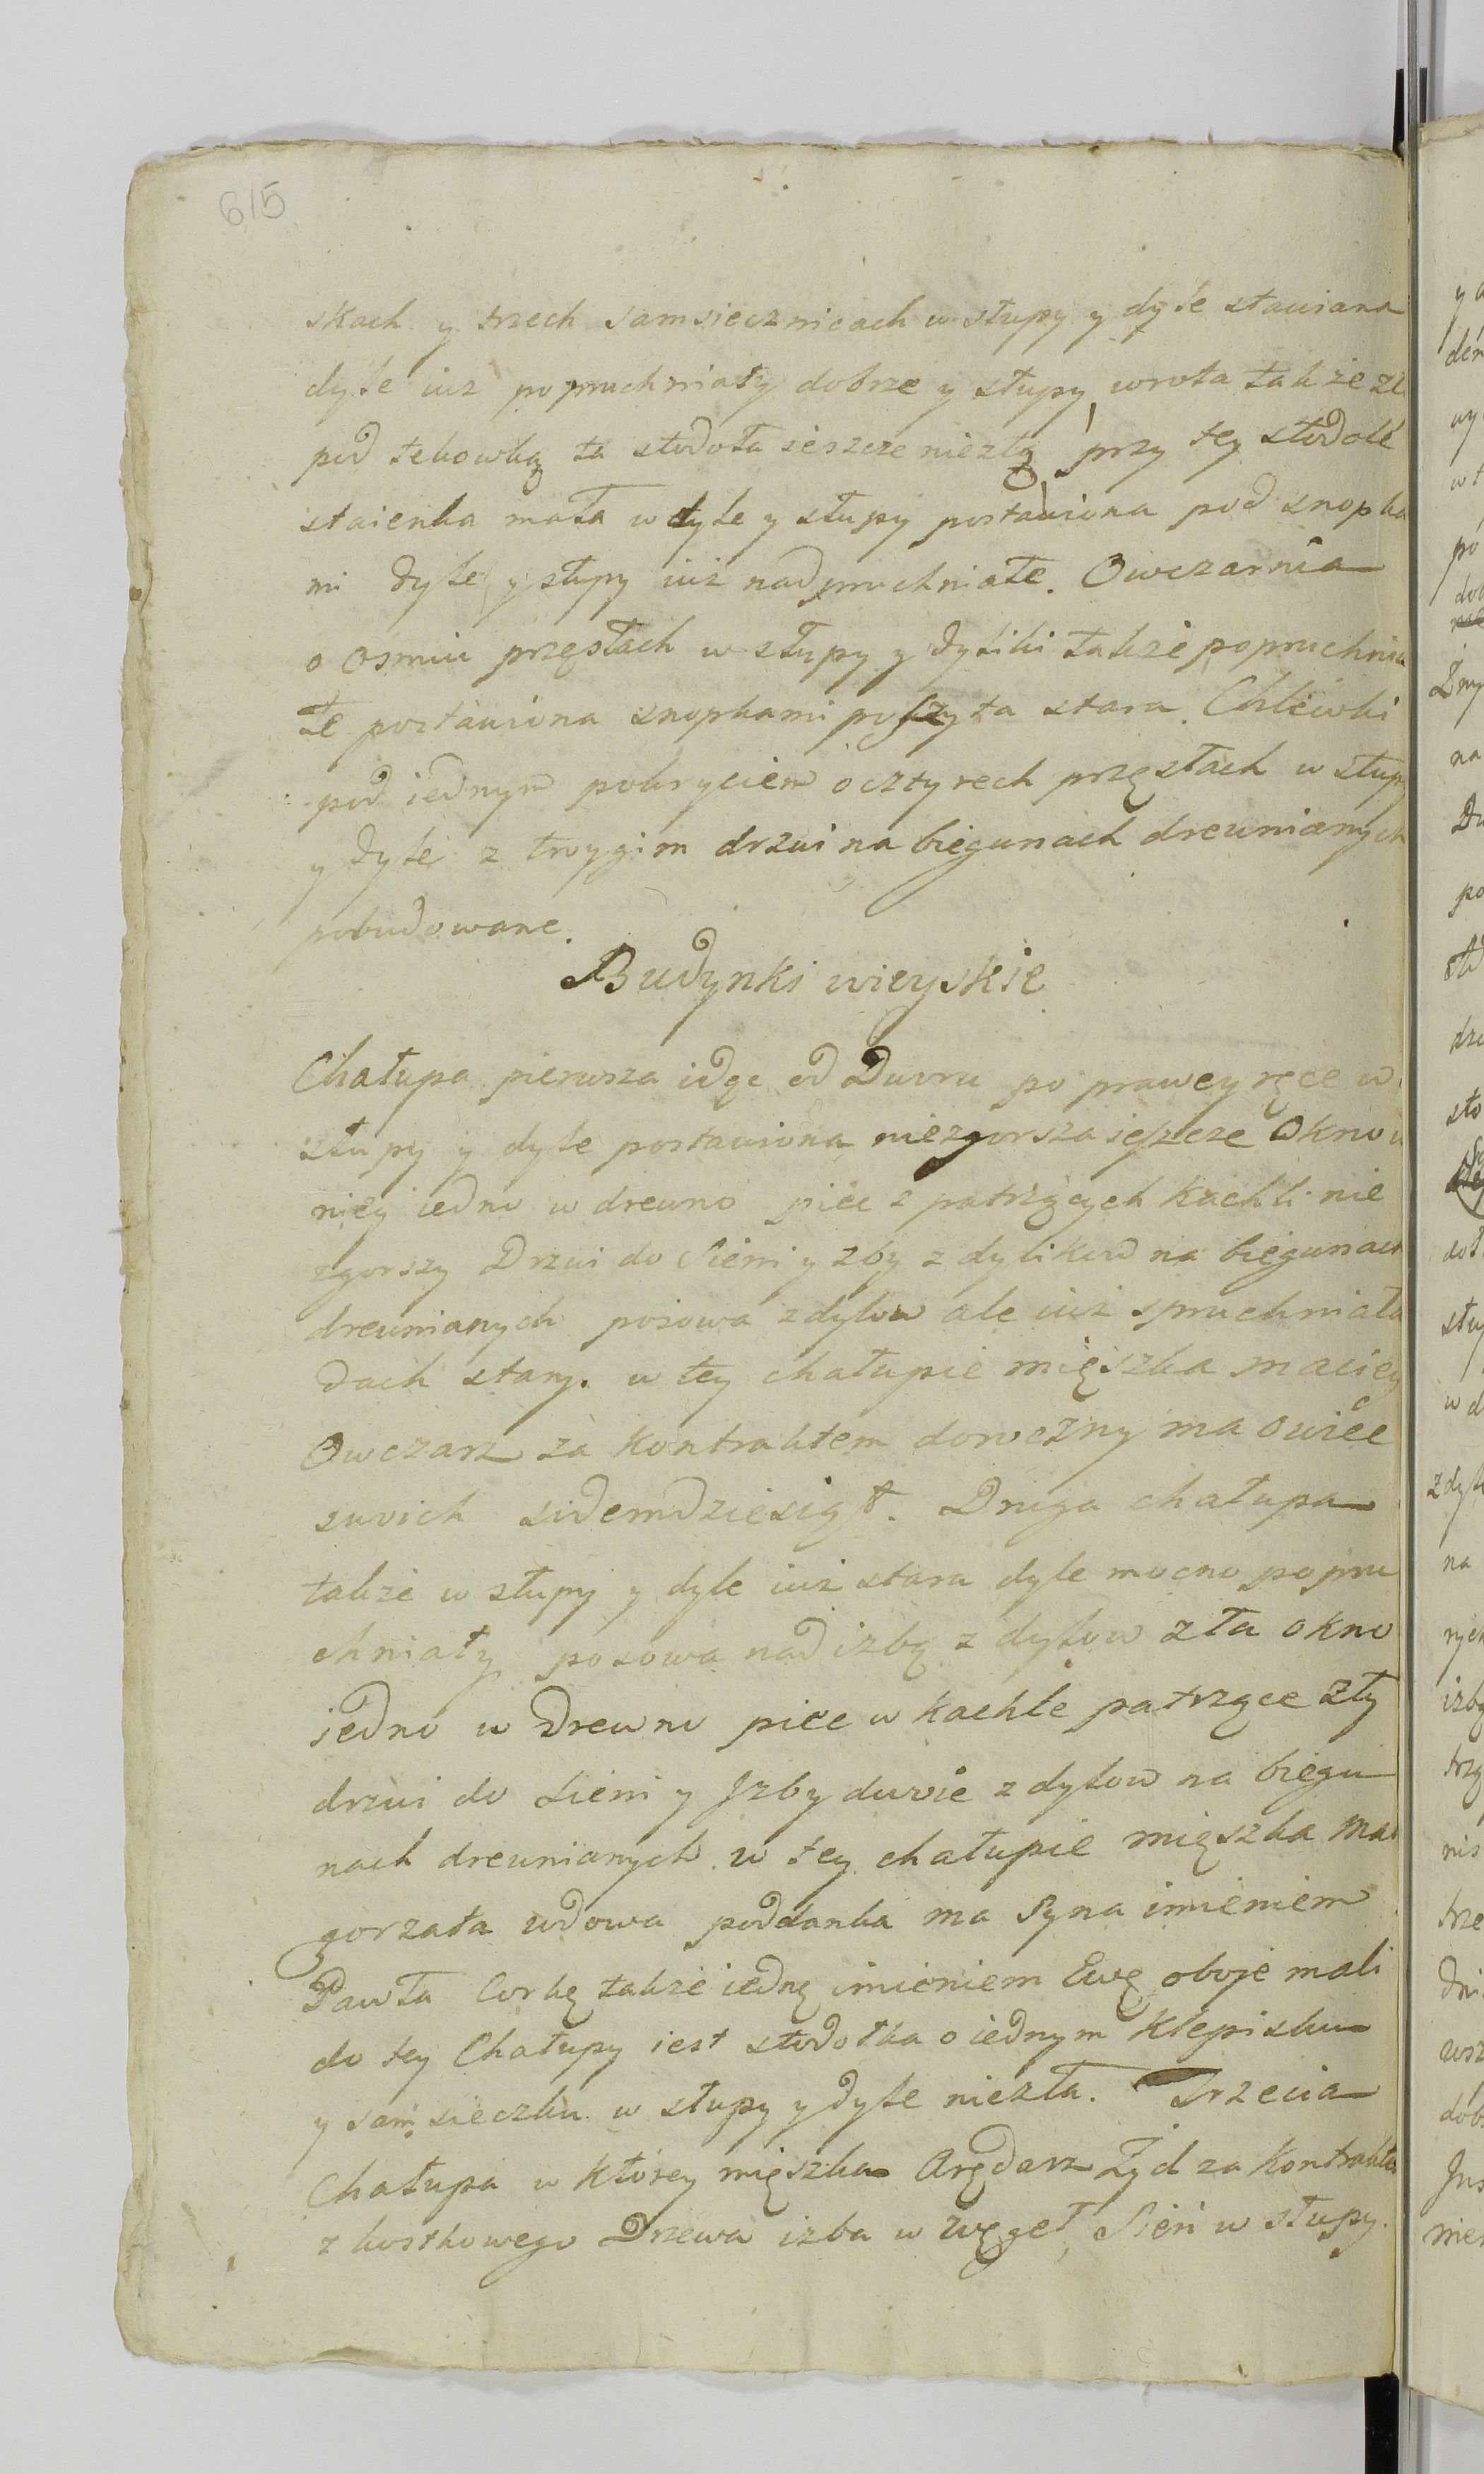 615
skach y trzech samsiecznicach w słupy y dyle stawiana
dyle iuz popruchniały dobrze y słupy wrota takze zł
pod tekowką ta stodoła ieszcze niezła przy tey stodole
staienka mała w dyle y słupy postawiona pod snopka
mi dyle y słupy iuż nadpruchniałe. Owczarnia
o osmiu przęsłach w słupy y dyliki takze popruchnia
łe postawiona snopkami poszyta stara. Chlewki
pod iednym pokryciem o cztyrech przęsłach w słupy
y dyle z troygiem drzwi na biegunach drewnianych
pobudowane.
Budynki wieyskie
Chałupa pierwsza idąc od Dworu po prawey ręce w
słupy y dyle postawiona niezgorsza ieszcze Okno w
niey iedno w drewno piec z patrzących kachli nie
zgorszy Drzwi do Sieni y zby z dylikow na biegunach
drewnianych posowa z dylow ale iuż spruchniała
dach stary. w tey chałupie mięszka Maciey
Owczarz za kontraktem doroczny ma owiec
swoich sidemdziesiąt. Druga chałupa
takze w słupy y dyle iuż stara dyle mocno popru
chniały posowa nad izbą z dylow zła okno
jedno w drewno piec w kachle patrzące zły
drzwi do sieni y Jzby dwoie z dylow na biegu
nach drewnianych w tey chałupie mięszka Mał
gorzata wdowa poddanka ma Syna imieniem
Pawła Corkę takze iednę imieniem Ewę oboje mali
do tey Chałupy iest stodołka o iednym klepisku
y samsieczku w słupy y dyle niezła. Trzecia
Chałupa w ktorey mięszka Arędarz Żyd za kontrakte
z kostkowego Drzewa izba w węgeł, Sień w słupy.